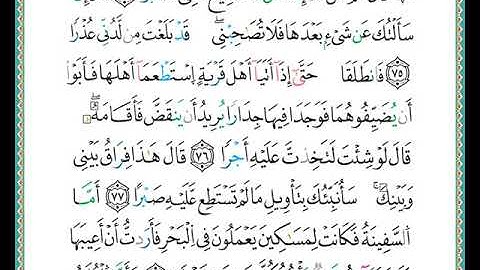 سَأَلْتُكَ عَن شَيْءٍ بَعْدَهَا فَلَا تُصَٰحِبْنِي قَدْ بَلَغْتَ مِن لَّدُنِّي عُذْرًا
٧٥ فَانطَلَقَا حَتَّىٰ إِذَا أَتَيَا أَهْلَ قَرْيَةٍ اِسْتَطْعَمَا أَهْلَهَا فَأَبَوْا
أَن يُضَيِّفُوهُمَا فَوَجَدَا فِيهَا جِدَارًا يُرِيدُ أَن يَنقَضَّ فَأَقَامَهُ
قَالَ لَوْ شِئْتَ لَتَخِذتَّ عَلَيْهِ أَجْرًا ٧٦ قَالَ هَٰذَا فِرَاقُ بَيْنِي
وَبَيْنِكَ سَأُنَبِّئُكَ بِتَأْوِيلِ مَا لَمْ تَسْتَطِع عَّلَيْهِ صَبْرًا ٧٧ أَمَّا
السَّفِينَةُ فَكَانَتْ لِمَسَٰكِينَ يَعْمَلُونَ فِي الْبَحْرِ فَأَرَدتُّ أَنْ أَعِيبَهَا